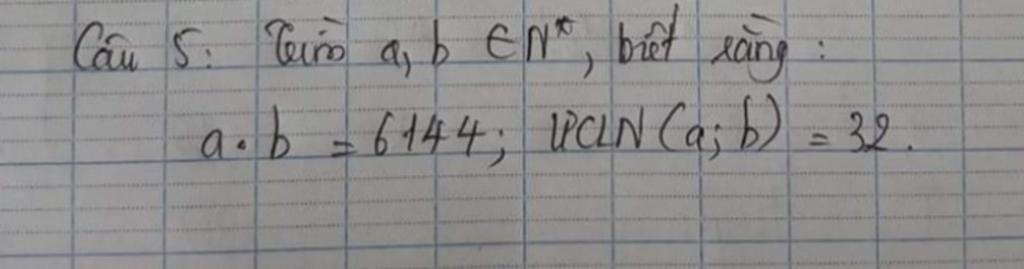 Câu 5: Tìm a, b ∈ N*, biết rằng :
a . b = 6144; ƯCLN (a; b) = 32.